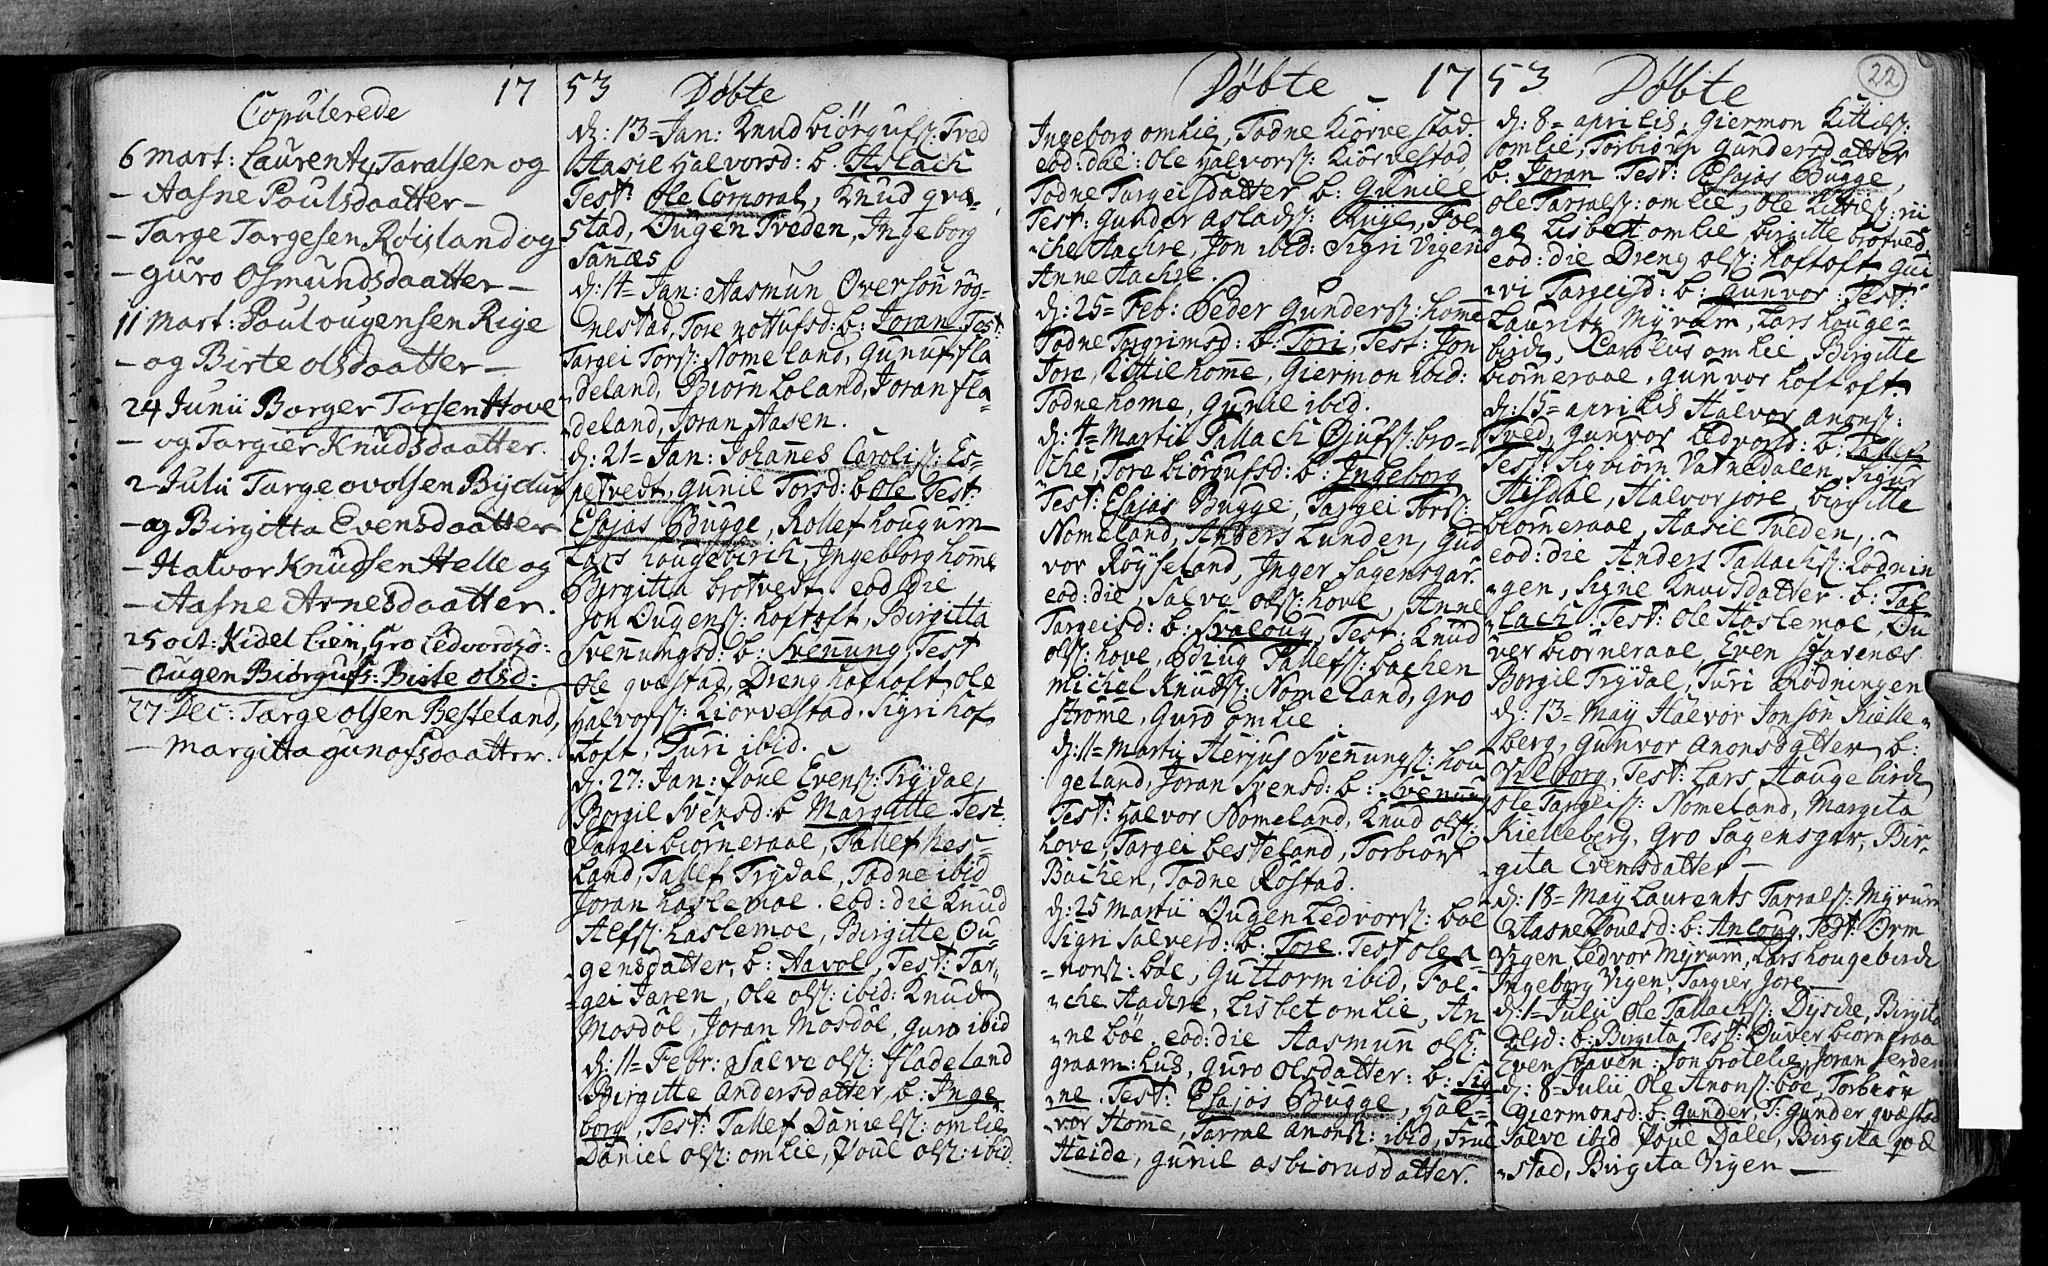 17
Copulerede
6 Mart: Laurentz Taralsen og
– Aasne Paulsdaatter –
– Targe Targesen Røisland og
– Guro Osmundsdaatter –
11 Mart: Paul ougensen Rige
– og Birte olsdaatter –
24 Junii Borger Torsen Hove
– og Targier Knudsdaatter.
2 Julii Targe ovolsen Bÿdur
– og Birgitta Evensdaatter
– Halvor Knudsen Helle og
– Aasne Arnesdaatter.
25 oct: Kidel Lien, Gro Ledvordsd:
– Ougen Biørgufs: Birte olsd:
27 Dec: Targe olsen Besteland,
– Margitta gunofsdaatter.
53 Døbte
d: 13 Jan: Knud biørgufs: Tved
Aasil Halvorsd: b. Aslach
Test: Ole Corporal, Knud qvæ-
stad, Ougen Tveden, Ingeborg
Sanæs
d: 14 Jan: Aasmun Overson røg-
nestad, Tore nottufsd: b: Joran. Test:
Targei Tors: Nomeland, Gunuf fla
deland, Biørn Loland, Joran fla-
deland, Joran Aasen.
d: 21 Jan: Johannes Carolis: Es-
petvedt, Gunil Torsd: b. Ole Test:
Esajas Bugge, Rollef hougum
Lars hougebirch, Ingeborg homme
Byrgitta brotvedt. eod: die
Jon Ougens: hoftoft, Birgitta
Svennungsd: b: Svennung, Test
Ole qvæstad, Dreng hoftoft, ole
Halvors: Kiørvestad. Sigri hof
toft, Turi ibid.
d: 27: Jan: Poul Evens: Trÿdal,
Borgil Svensd: b Margitte Test:
Targei biorneraae, Tallef hes-
land, Tallef Trÿdal, Todne ibid
Joran haslemoe. eod: die Knud
Alfs: haslemoe, Birgitte Ou-
gensdatter, b: Aavol, Test: Tar-
gei Jaren, ole ols: ibid: Knud
Mosdøl, Joran Mosdøl, guro ibid
d: 11 Febr: Salve ols: fladeland
Birgitte Andersdatter, b: Inge
borg, Test: Tallef Daniels: omlie
Daniel ols: omlie, Poul ols: ibid:
Døbte 17
Ingeborg omlie, Todne Kiørvestad.
eod: die: Ole Halvors: Kiörvestad,
Todne Targeisdatter b: Gunild
Test: Gunder aslads: Rüge, Fol-
che Aachre, Jon ibid: Sigri Vigen
Anne Aachre.
d: 25 Feb: Peder Gunders: homme
Todne Targrimsd: b: Tori, Test: Jon
Jore, Kittil homme, Giermon ibid:
Todne home, Gunil ibid.
d: 4 Martii Tallach Ojufs: bro-
che, Tore biörgufsd: b: Ingeborg
Test: Esajas Bugge, Targei Tors:
Nomeland, Anders Lunden, Gun
vor Röÿseland, Inger Sagensgar.
eod: die, Salve ols: hove, Anne
Targeisd: b: Svaloug, Test: Knud
ols: hove, Ødiug Tallefs: bachen
Michel Knuds: Nomeland, gro
strome, Guro omlie.
d: 11 Martii Herjus Svennungs: hou
geland, Joran Svensd: b: Svenung
Test: Halvor Nomeland, Knud ols:
hove, Targei besteland, Torbior
Bachen, Todne Rostad.
d: 25 Martii Ougen Ledvors: boe
Sigri Salversd: b: Tore. Test ole a-
nons: boe, Guttorm ibid, Fol-
che Aachre, Lisbet omlie, An
ne böe, eod: die Aasmun ols:
graam: Lus, Guro olsdatter: b: Sig
ne. Test: Esajas Bugge, Hal-
vor Home, Tarral anons: ibid, Frue
Heide, gunil asbiornsdatter.
53 Døbte
22
d: 8 aprilis, Giermon Kittils:
omlie, Torbiörn Gundersdatter
b: Joran Test: Esajas Bugge,
ole Tarrals: omlie, ole Kittils: rü
ge Lisbet omlie, birgitte brotved
eod: die Dreng ols: hoftoft Gu
ri Targeisd: b: Gunvor. Test:
Lauritz Myrum, Lars houge-
birch, Carolus omlie, Birgitte
biorneraae, Gunvor hoftoft.
d: 15 aprilis Halvor anons:
Tved, Gunvor Ledvorsd: b: Tallef
Test: Sigbiörn Vatnedalen, Sigur
Hisdal, Halvor jore, birgitte
biorneraae, Aasil Tveden,
eod: die Anders Tallachs: Rodnin
gen, Signe Knudsdatter. b: Tal
lach. Test: ole Haslemoe, Ou
ver biorneraae, Even Stavenæs
Borgil Trÿdal, Turi Rodningen
d: 13 May Halvor Jonson Kielle-
berg, Gunvor Anonsdatter b:
Vilborg, Test: Lars Haugebirch
ole Targeis: Nomeland, Margita
Kielleberg, Gro Sagensgar, Bir-
gita Evensdatter
d: 18 Maÿ Laurents Tarrals: Mÿrum
Aasne Poulsd: b: Anloug. Test: Orm
Vigen, Ledvor Mÿrum, Lars hougebirch
Ingeborg Vigen, Targier Jore.
d: 1 Julii Ole Tallachs: Dÿsche, Birgita
Olsd: b: Birgita Test: Ouver biornraa
Even Staven: Jon brotelie, Joran Jerden
d: 8 Julii Ole Anons: böe, Torbior
Giermonsd: b: Gunder, T: Gunder qvæstad
Salve ibid Poul Dale, Birgita qvæ
stad, Birgita Vigen –